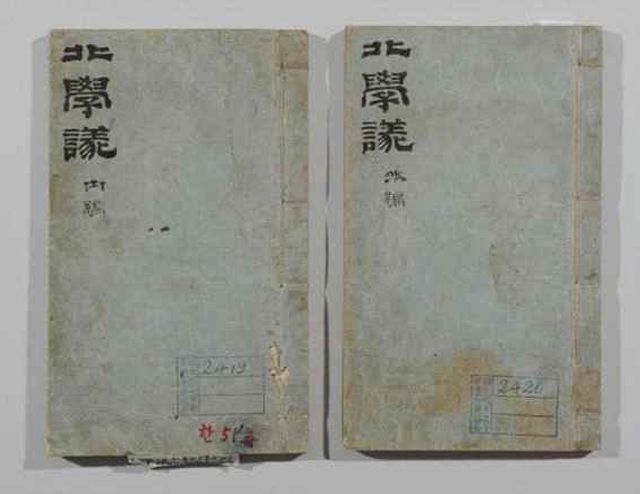 北學議
內編
2419
한 5
北學議
外編
2420